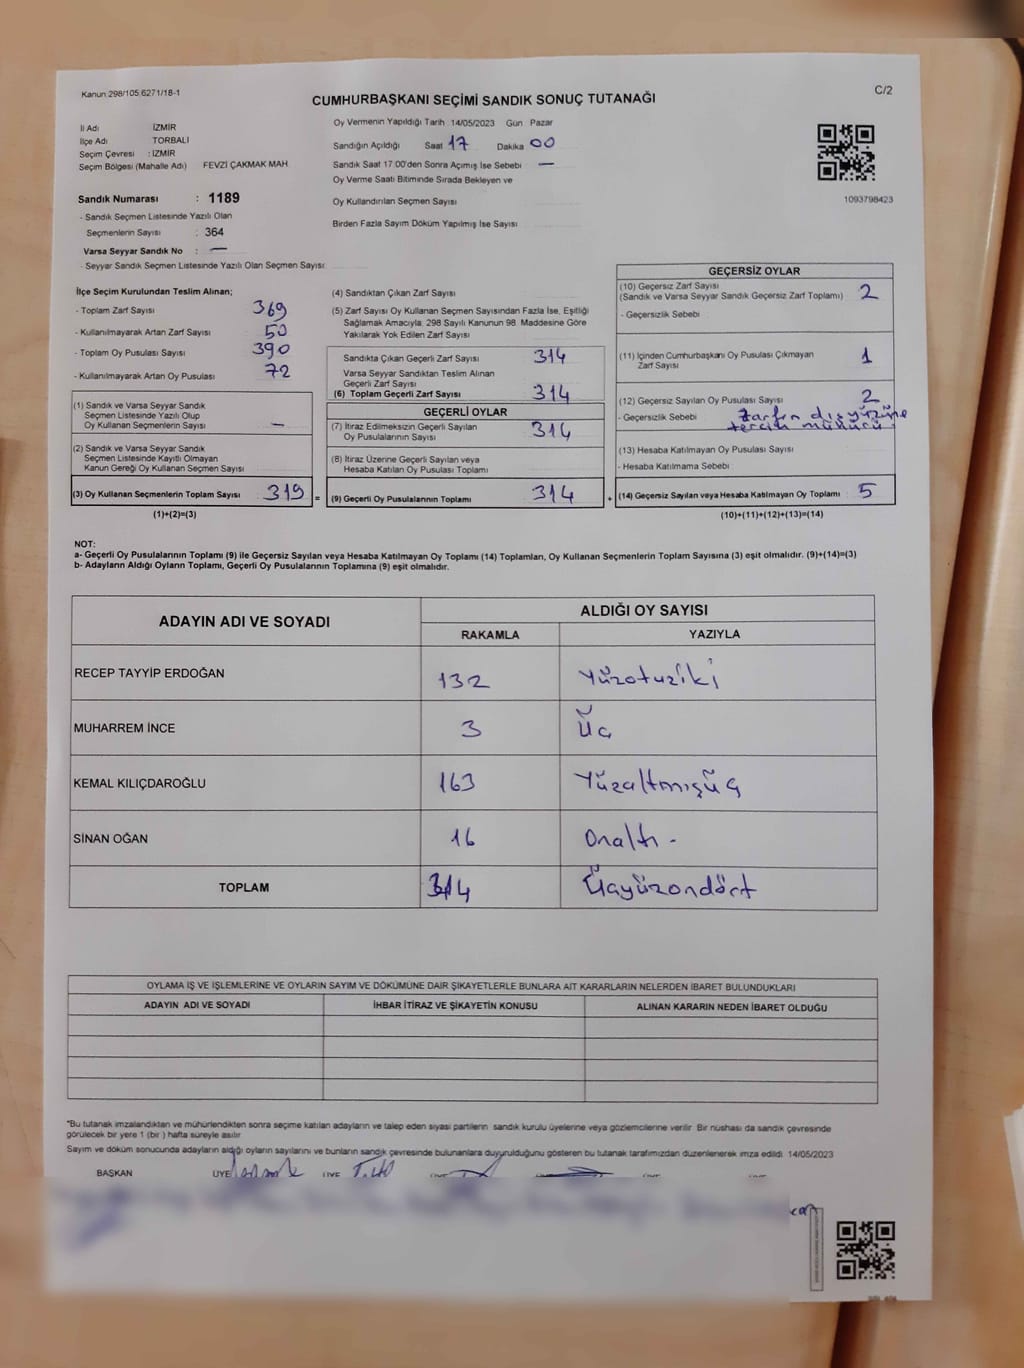 Kanun 298/105 6271/18-1
C/2
CUMHURBAŞKANI SEÇİMİ SANDIK SONUÇ TUTANAĞI
İl Adı İZMİR
İlçe Adı TORBALI
Seçim Çevresi : İZMİR
Seçim Bölgesi (Mahalle Adı) FEVZİ ÇAKMAK MAH.
Sandık Numarası : 1189
- Sandık Seçmen Listesinde Yazılı Olan
Seçmenlerin Sayısı : 364
Varsa Seyyar Sandık No : —
- Seyyar Sandık Seçmen Listesinde Yazılı Olan Seçmen Sayısı:
Oy Vermenin Yapıldığı Tarih 14/05/2023 Gün Pazar
Sandığın Açıldığı Saat 17 Dakika 00
Sandık Saat 17:00'den Sonra Açımış İse Sebebi —
Oy Verme Saati Bitiminde Sırada Bekleyen ve
Oy Kullandırılan Seçmen Sayısı
Birden Fazla Sayım Döküm Yapılmış İse Sayısı
1093798423
İlçe Seçim Kurulundan Teslim Alınan;
- Toplam Zarf Sayısı 369
- Kullanılmayarak Artan Zarf Sayısı 50
- Toplam Oy Pusulası Sayısı 390
- Kullanılmayarak Artan Oy Pusulası 72
(1) Sandık ve Varsa Seyyar Sandık
Seçmen Listesinde Yazılı Olup
Oy Kullanan Seçmenlerin Sayısı —
(2) Sandık ve Varsa Seyyar Sandık
Seçmen Listesinde Kayıtlı Olmayan
Kanun Gereği Oy Kullanan Seçmen Sayısı
(3) Oy Kullanan Seçmenlerin Toplam Sayısı 319 =
(1)+(2)=(3)
(4) Sandıktan Çıkan Zarf Sayısı
(5) Zarf Sayısı Oy Kullanan Seçmen Sayısından Fazla İse, Eşitliği
Sağlamak Amacıyla, 298 Sayılı Kanunun 98. Maddesine Göre
Yakılarak Yok Edilen Zarf Sayısı
Sandıkta Çıkan Geçerli Zarf Sayısı 314
Varsa Seyyar Sandıktan Teslim Alınan
Geçerli Zarf Sayısı
(6) Toplam Geçerli Zarf Sayısı 314
GEÇERLİ OYLAR
(7) İtiraz Edilmeksizin Geçerli Sayılan
Oy Pusulalarının Sayısı 314
(8) İtiraz Üzerine Geçerli Sayılan veya
Hesaba Katılan Oy Pusulası Toplamı
(9) Geçerli Oy Pusulalarının Toplamı 314 +
GEÇERSİZ OYLAR
(10) Geçersiz Zarf Sayısı 2
(Sandık ve Varsa Seyyar Sandık Geçersiz Zarf Toplamı)
- Geçersizlik Sebebi
(11) İçinden Cumhurbaşkanı Oy Pusulası Çıkmayan 1
Zarf Sayısı
(12) Geçersiz Sayılan Oy Pusulası Sayısı 2
- Geçersizlik Sebebi Zarfın dış yüzüne
tercih mühürü
(13) Hesaba Katılmayan Oy Pusulası Sayısı
- Hesaba Katılmama Sebebi
(14) Geçersiz Sayılan veya Hesaba Katılmayan Oy Toplamı 5
(10)+(11)+(12)+(13)=(14)
NOT:
a- Geçerli Oy Pusulalarının Toplamı (9) ile Geçersiz Sayılan veya Hesaba Katılmayan Oy Toplamı (14) Toplamları, Oy Kullanan Seçmenlerin Toplam Sayısına (3) eşit olmalıdır. (9)+(14)=(3)
b- Adayların Aldığı Oyların Toplamı, Geçerli Oy Pusulalarının Toplamına (9) eşit olmalıdır.
ADAYIN ADI VE SOYADI ALDIĞI OY SAYISI
RAKAMLA YAZIYLA
RECEP TAYYİP ERDOĞAN 132 Yüzotuziki
MUHARREM İNCE 3 Üç
KEMAL KILIÇDAROĞLU 163 Yüzaltmışüç
SİNAN OĞAN 16 Onaltı -
TOPLAM 314 Üçyüzondört
OYLAMA İŞ VE İŞLEMLERİNE VE OYLARIN SAYIM VE DÖKÜMÜNE DAİR ŞİKAYETLERLE BUNLARA AİT KARARLARIN NELERDEN İBARET BULUNDUKLARI
ADAYIN ADI VE SOYADI İHBAR İTİRAZ VE ŞİKAYETİN KONUSU ALINAN KARARIN NEDEN İBARET OLDUĞU
*Bu tutanak imzalandıktan ve mühürlendikten sonra seçime katılan adayların ve talep eden siyasi partilerin sandık kurulu üyelerine veya gözlemcilerine verilir. Bir nüshası da sandık çevresinde
görülecek bir yere 1 (bir ) hafta süreyle asılır
Sayım ve döküm sonucunda adayların aldığı oyların sayılarını ve bunların sandık çevresinde bulunanlara duyurulduğunu gösteren bu tutanak tarafımızdan düzenlenerek imza edildi. 14/05/2023
BAŞKAN ÜYE ÜYE